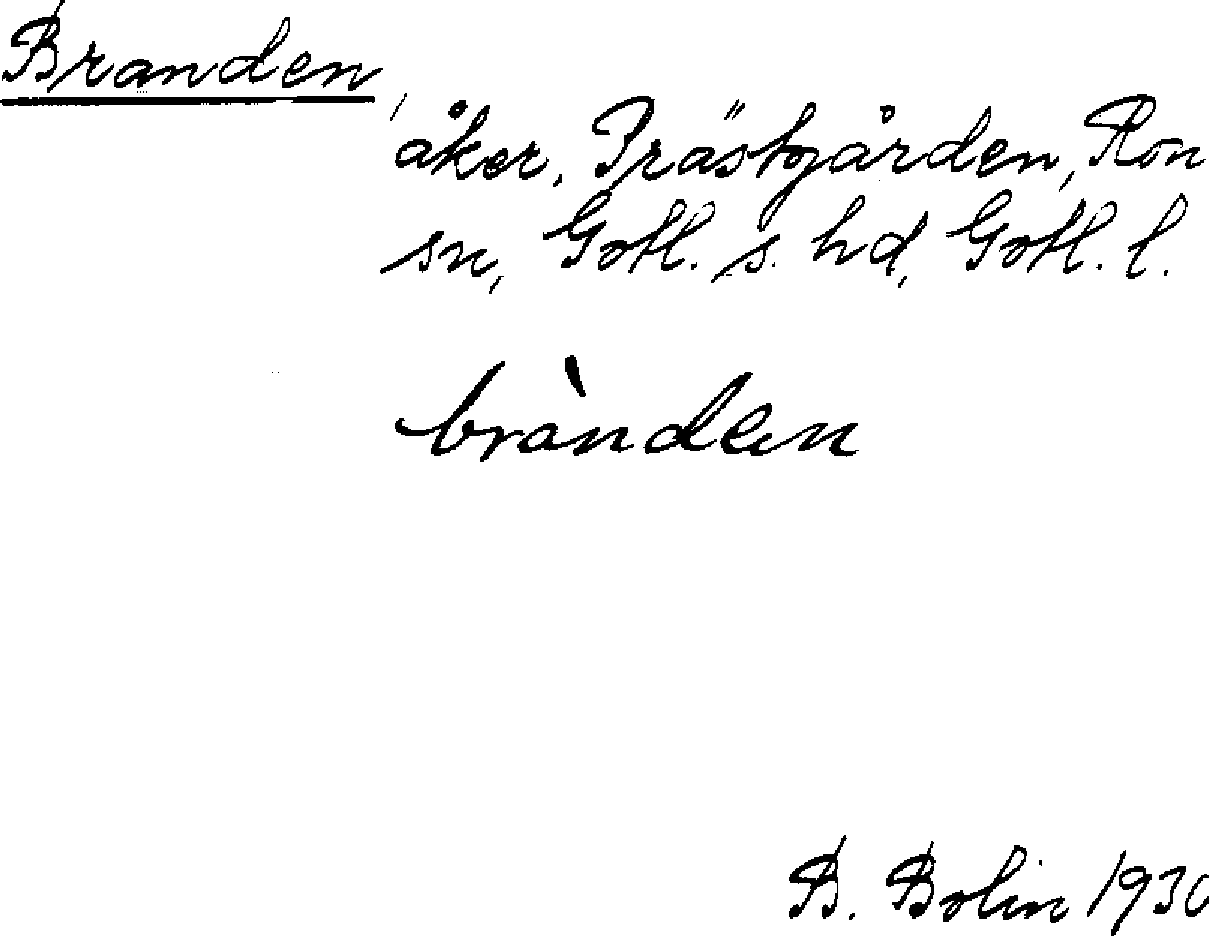 Branden,
åker, Prästgården, Ron
sn, Gotl. s. hd, Gotl. l.
brànden
B. Bolin 1930